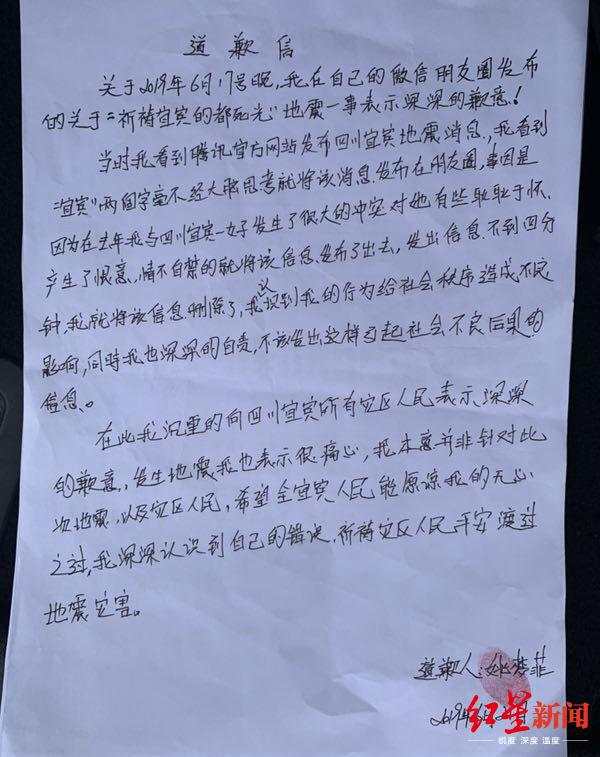 道歉信
关于2019年6月17号晚,我在自己的微信朋友圈发布
的关于“祈祷宜宾的都死光”地震一事表示深深的歉意!
当时我看到腾讯官方网站发布四川宜宾地震消息,我看到
“宜宾”两个字毫不经大脑思考就将该消息发布在朋友圈,事因是
因为在去年我与四川宜宾一女子发生了很大的冲突对她有些耿耿于怀.
产生了恨意,情不自禁的就将该信息发布了出去,发出信息不到四分
钟,我就将该信息删除了,我认识到我的行为给社会秩序造成不良
影响,同时我也深深的自责,不该发出这样引起社会不良后果的
信息。
在此我沉重的向四川宜宾所有灾区人民表示深深
的歉意,发生地震我也表示很痛心,我本意并非针对此
次地震,以及灾区人民,希望全宜宾人民能原谅我的无心
之过,我深深认识到自己的错误,祈祷灾区人民平安渡过
地震灾害。
道歉人:姚梦菲
2019年6月
红星新闻
锐度 深度 温度